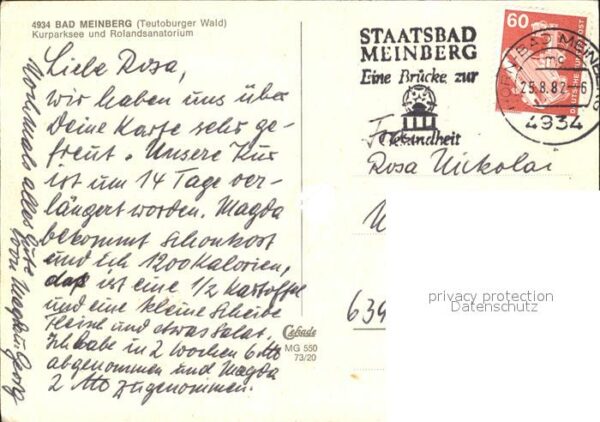 4934 BAD MEINBERG (Teutoburger Wald)
Kurparksee und Rolandsanatorium
Liebe Rosa,
wir haben uns über
Deine Karte sehr ge-
freut. Unsere Kur
ist um 14 Tage ver-
längert worden. Magda
bekommt Schonkost
und ich 1200 Kalorien,
das ist eine 1/2 Kartoffel
und eine kleine Scheibe
Fleisch und etwas Salat.
Ich habe in 2 Wochen 6 Kilo
abgenommen und Magda
2 Kilo zugenommen.
Nochmals alles Gute
von Magda u. Georg
STAATSBAD
MEINBERG
Eine Brücke zur
Gesundheit
60
DEUTSCHE BUNDESPOST
BAD MEINBERG
mc
25.8.82-16
4934
Rosa Nickolai
634
Cekade
MG 550
73/20
privacy protection
Datenschutz